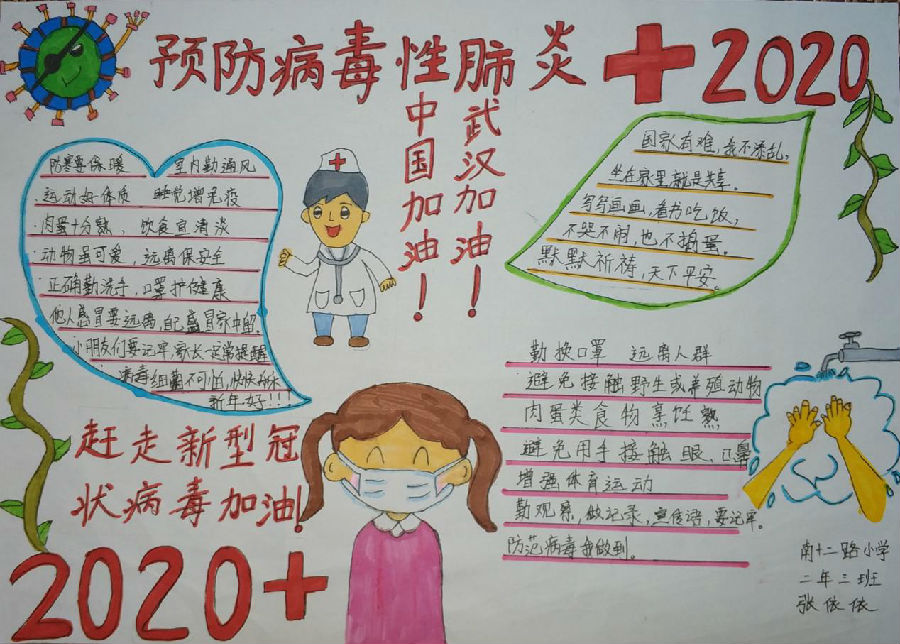 预防病毒性肺炎
2020
中国加油！
武汉加油！
防寒要保暖 室内勤通风
运动好体质 睡觉增免疫
肉蛋十分熟，饮食宜清淡
动物虽可爱，远离保安全
正确勤洗手，口罩护健康
他人感冒要远离，自己感冒家中留
小朋友们要记牢，家长一定常提醒
病毒细菌不可怕，快快
新年好!!!
国家有难，我不添乱，
坐在家里，就是共享。
写写画画，看书吃饭，
不哭不闹，也不捣蛋。
默默祈祷，天下平安。
赶走新型冠
状病毒加油!
2020+
勤换口罩 远离人群
避免接触野生或养殖动物
肉蛋类食物烹饪熟
避免用手接触眼、口鼻
增强体育运动
勤观察，做记录，宣传语，要记牢。
防范病毒我做到。
南十二路小学
二年三班
张依依